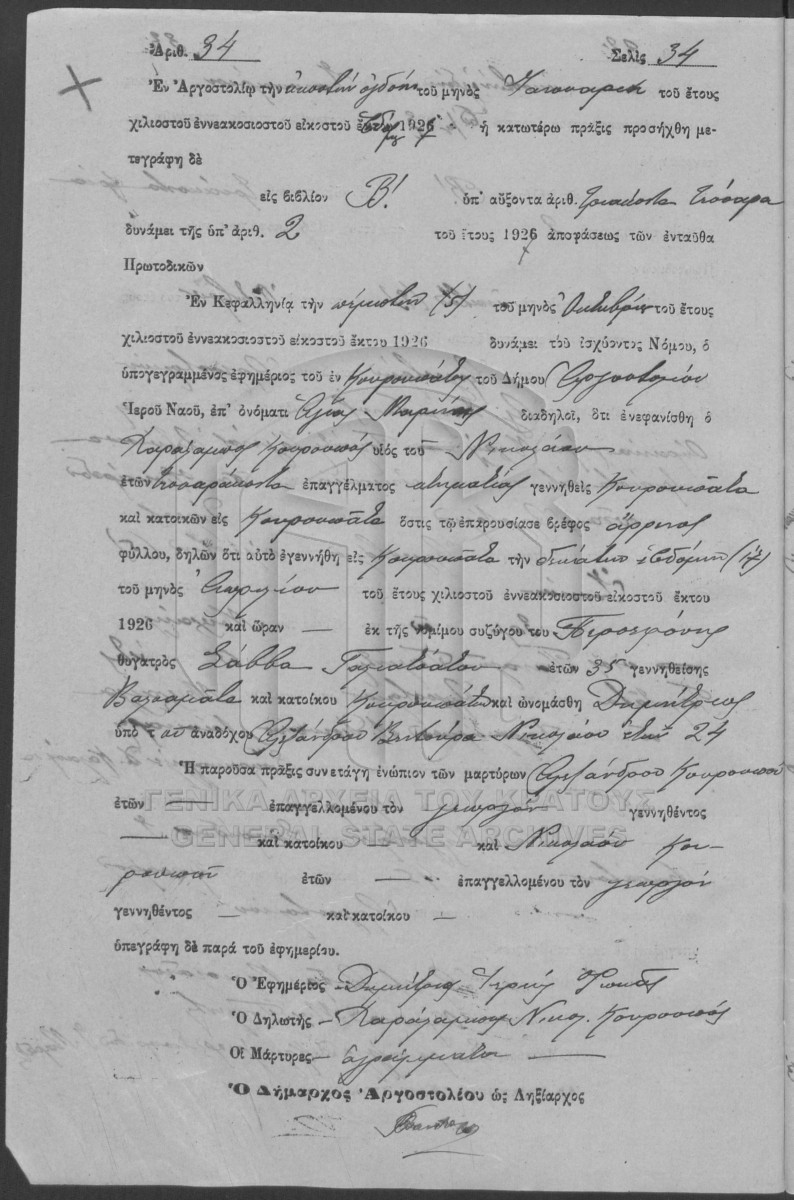 Ἀριθ. 34 Σελὶς 34
Ἐν Ἀργοστολίῳ τὴν εἰκοστὴν ὀγδόην τοῦ μηνὸς Ἰανουαρίου τοῦ ἔτους
χιλιοστοῦ ἐννεακοσιοστοῦ εἰκοστοῦ 1927 ἡ κατωτέρω πρᾶξις προσήχθη με-
τεγράφη δὲ
εἰς βιβλίον Β! ὑπ' αὔξοντα ἀριθ. τριάκοντα τέσσαρα
δυνάμει τῆς ὑπ' ἀριθ. 2 τοῦ ἔτους 1927 ἀποφάσεως τῶν ἐνταῦθα
Πρωτοδικῶν
Ἐν Κεφαλληνίᾳ τὴν πέμπτην (5) τοῦ μηνὸς Ὀκτωβρίου τοῦ ἔτους
χιλιοστοῦ ἐννεακοσιοστοῦ εἰκοστοῦ ἕκτου 1926 δυνάμει τοῦ ἰσχύοντος Νόμου, ὁ
ὑπογεγραμμένος ἐφημέριος τοῦ ἐν Κουρουπάτα τοῦ Δήμου Ἀργοστολίου
Ἱεροῦ Ναοῦ, ἐπ' ὀνόματι Ἁγίας Μαρίνης διαδηλοῖ, ὅτι ἐνεφανίσθη ὁ
Χαράλαμπος Κουρουπός υἱὸς τοῦ Νικολάου
ἐτῶν τεσσαράκοντα ἐπαγγέλματος κτηματίας γεννηθεὶς Κουρουπάτα
καὶ κατοικῶν εἰς Κουρουπάτα ὅστις τῷ ἐπαρουσίασε βρέφος ἄρρενος
φύλλου, δηλῶν ὅτι αὐτὸ ἐγεννήθη εἰς Κουρουπάτα τὴν δεκάτην ἑβδόμην (17)
τοῦ μηνὸς Ἀπριλίου τοῦ ἔτους χιλιοστοῦ ἐννεακοσιοστοῦ εἰκοστοῦ ἕκτου
1926 καὶ ὥραν — ἐκ τῆς νομίμου συζύγου του Περσεφόνης
θυγατρὸς Σάββα Γαλιατσάτου ἐτῶν 35 γεννηθείσης
Βαλσαμάτα καὶ κατοίκου Κουρουπάτα καὶ ὠνομάσθη Δημήτριος
ὑπὸ τοῦ ἀναδόχου Ἀλεξάνδρου Βεντούρα Νικολάου ἐτῶν 24
Ἡ παροῦσα πρᾶξις συνετάγη ἐνώπιον τῶν μαρτύρων Ἀλεξάνδρου Κουρουπού
ἐτῶν — ἐπαγγελλομένου τὸν γεωργόν γεννηθέντος
— καὶ κατοίκου — καὶ Νικολάου Κου-
ρουπού ἐτῶν — ἐπαγγελλομένου τὸν γεωργόν
γεννηθέντος — καὶ κατοίκου —
ὑπεγράφη δὲ παρὰ τοῦ ἐφημερίου.
Ὁ Ἐφημέριος Δημήτριος Ἱερεύς Φωκᾶς
Ὁ Δηλωτὴς Χαράλαμπος Νικ. Κουρουπός
Οἱ Μάρτυρες — Ἀγράμματοι —
Ὁ Δήμαρχος Ἀργοστολίου ὡς Ληξίαρχος
ΓΕΝΙΚΑ ΑΡΧΕΙΑ ΤΟΥ ΚΡΑΤΟΥΣ
GENERAL STATE ARCHIVES